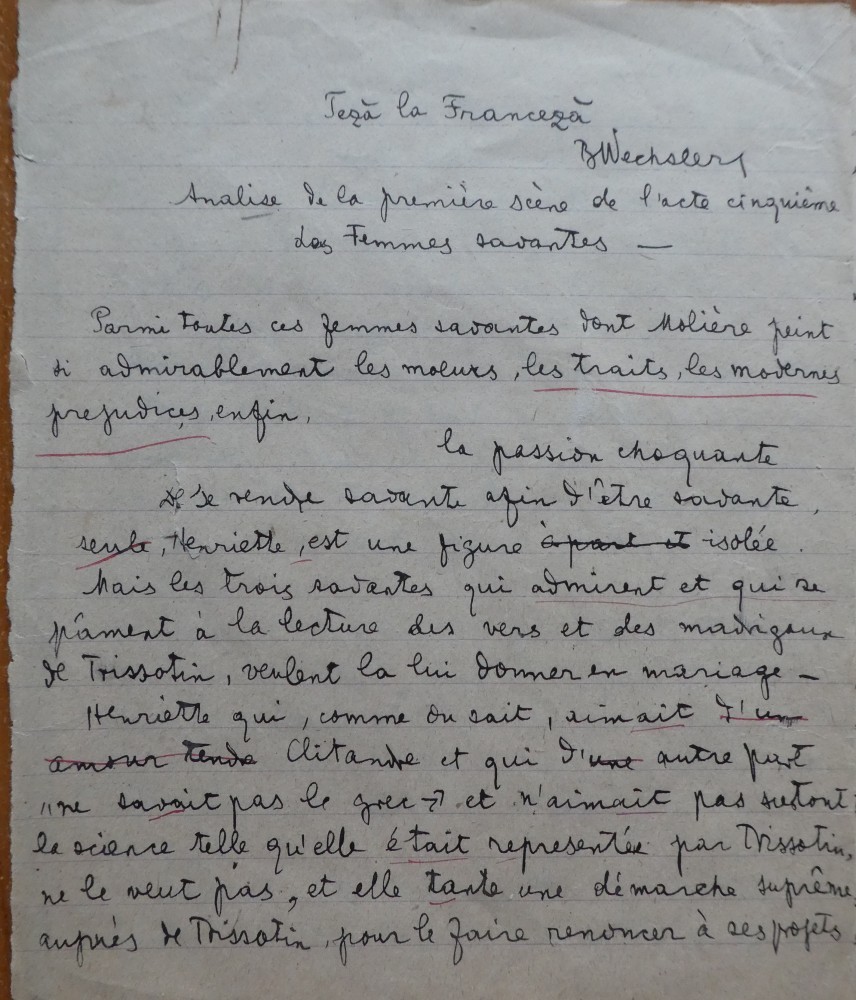 Teză la Franceză
B Wechsler
Analise de la première scène de l'acte cinquième
des Femmes savantes —
Parmi toutes ces femmes savantes dont Molière peint
si admirablement les moeurs, les traits, les modernes
prejudices, enfin,
la passion choquante
de se rendre savante afin d'être savante,
seule, Henriette, est une figure à part et isolée.
Mais les trois savantes qui admirent et qui se
pâment à la lecture des vers et des madrigaux
de Trissotin, veulent la lui donner en mariage –
Henriette qui, comme on sait, aimait d'un
amour tendre Clitandre et qui d'une autre part
"ne savait pas le grec" et n'aimait pas surtout
la science telle qu'elle était representée par Trissotin,
ne le veut pas, et elle tante une démarche suprême
auprès de Trissotin, pour le faire renoncer à ses projets